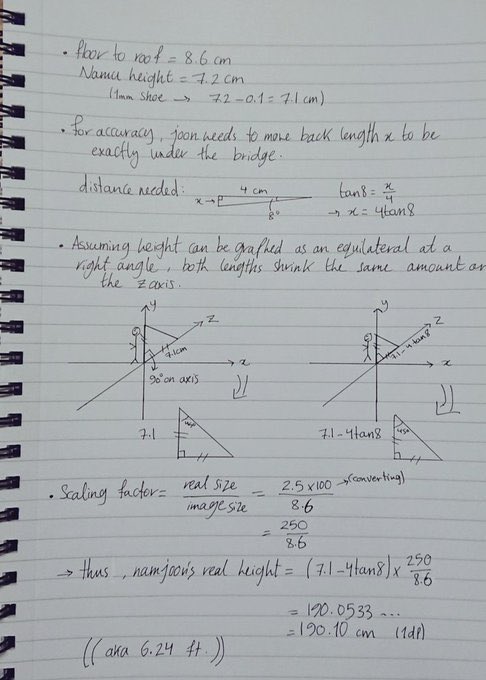 • floor to roof = 8.6 cm
Namu height = 7.2 cm
(1mm shoe → 7.2 - 0.1 = 7.1 cm)
• for accuracy, joon needs to move back length x to be
exactly under the bridge.
distance needed: x→ 4 cm 8° tan8 = x/4
→ x = 4tan8
• Assuming height can be graphed as an equilateral at a
right angle, both lengths shrink the same amount on
the z axis.
y z x 7.1cm 90° on axis
y z x 7.1-4tan8
7.1 45°
7.1-4tan8 45°
• Scaling factor = real size/image size = 2.5 x 100/8.6 → (converting)
= 250/8.6
→ thus, namjoon's real height = (7.1-4tan8) x 250/8.6
= 190.0533 ...
= 190.10 cm (1dp)
((aka 6.24 ft.))